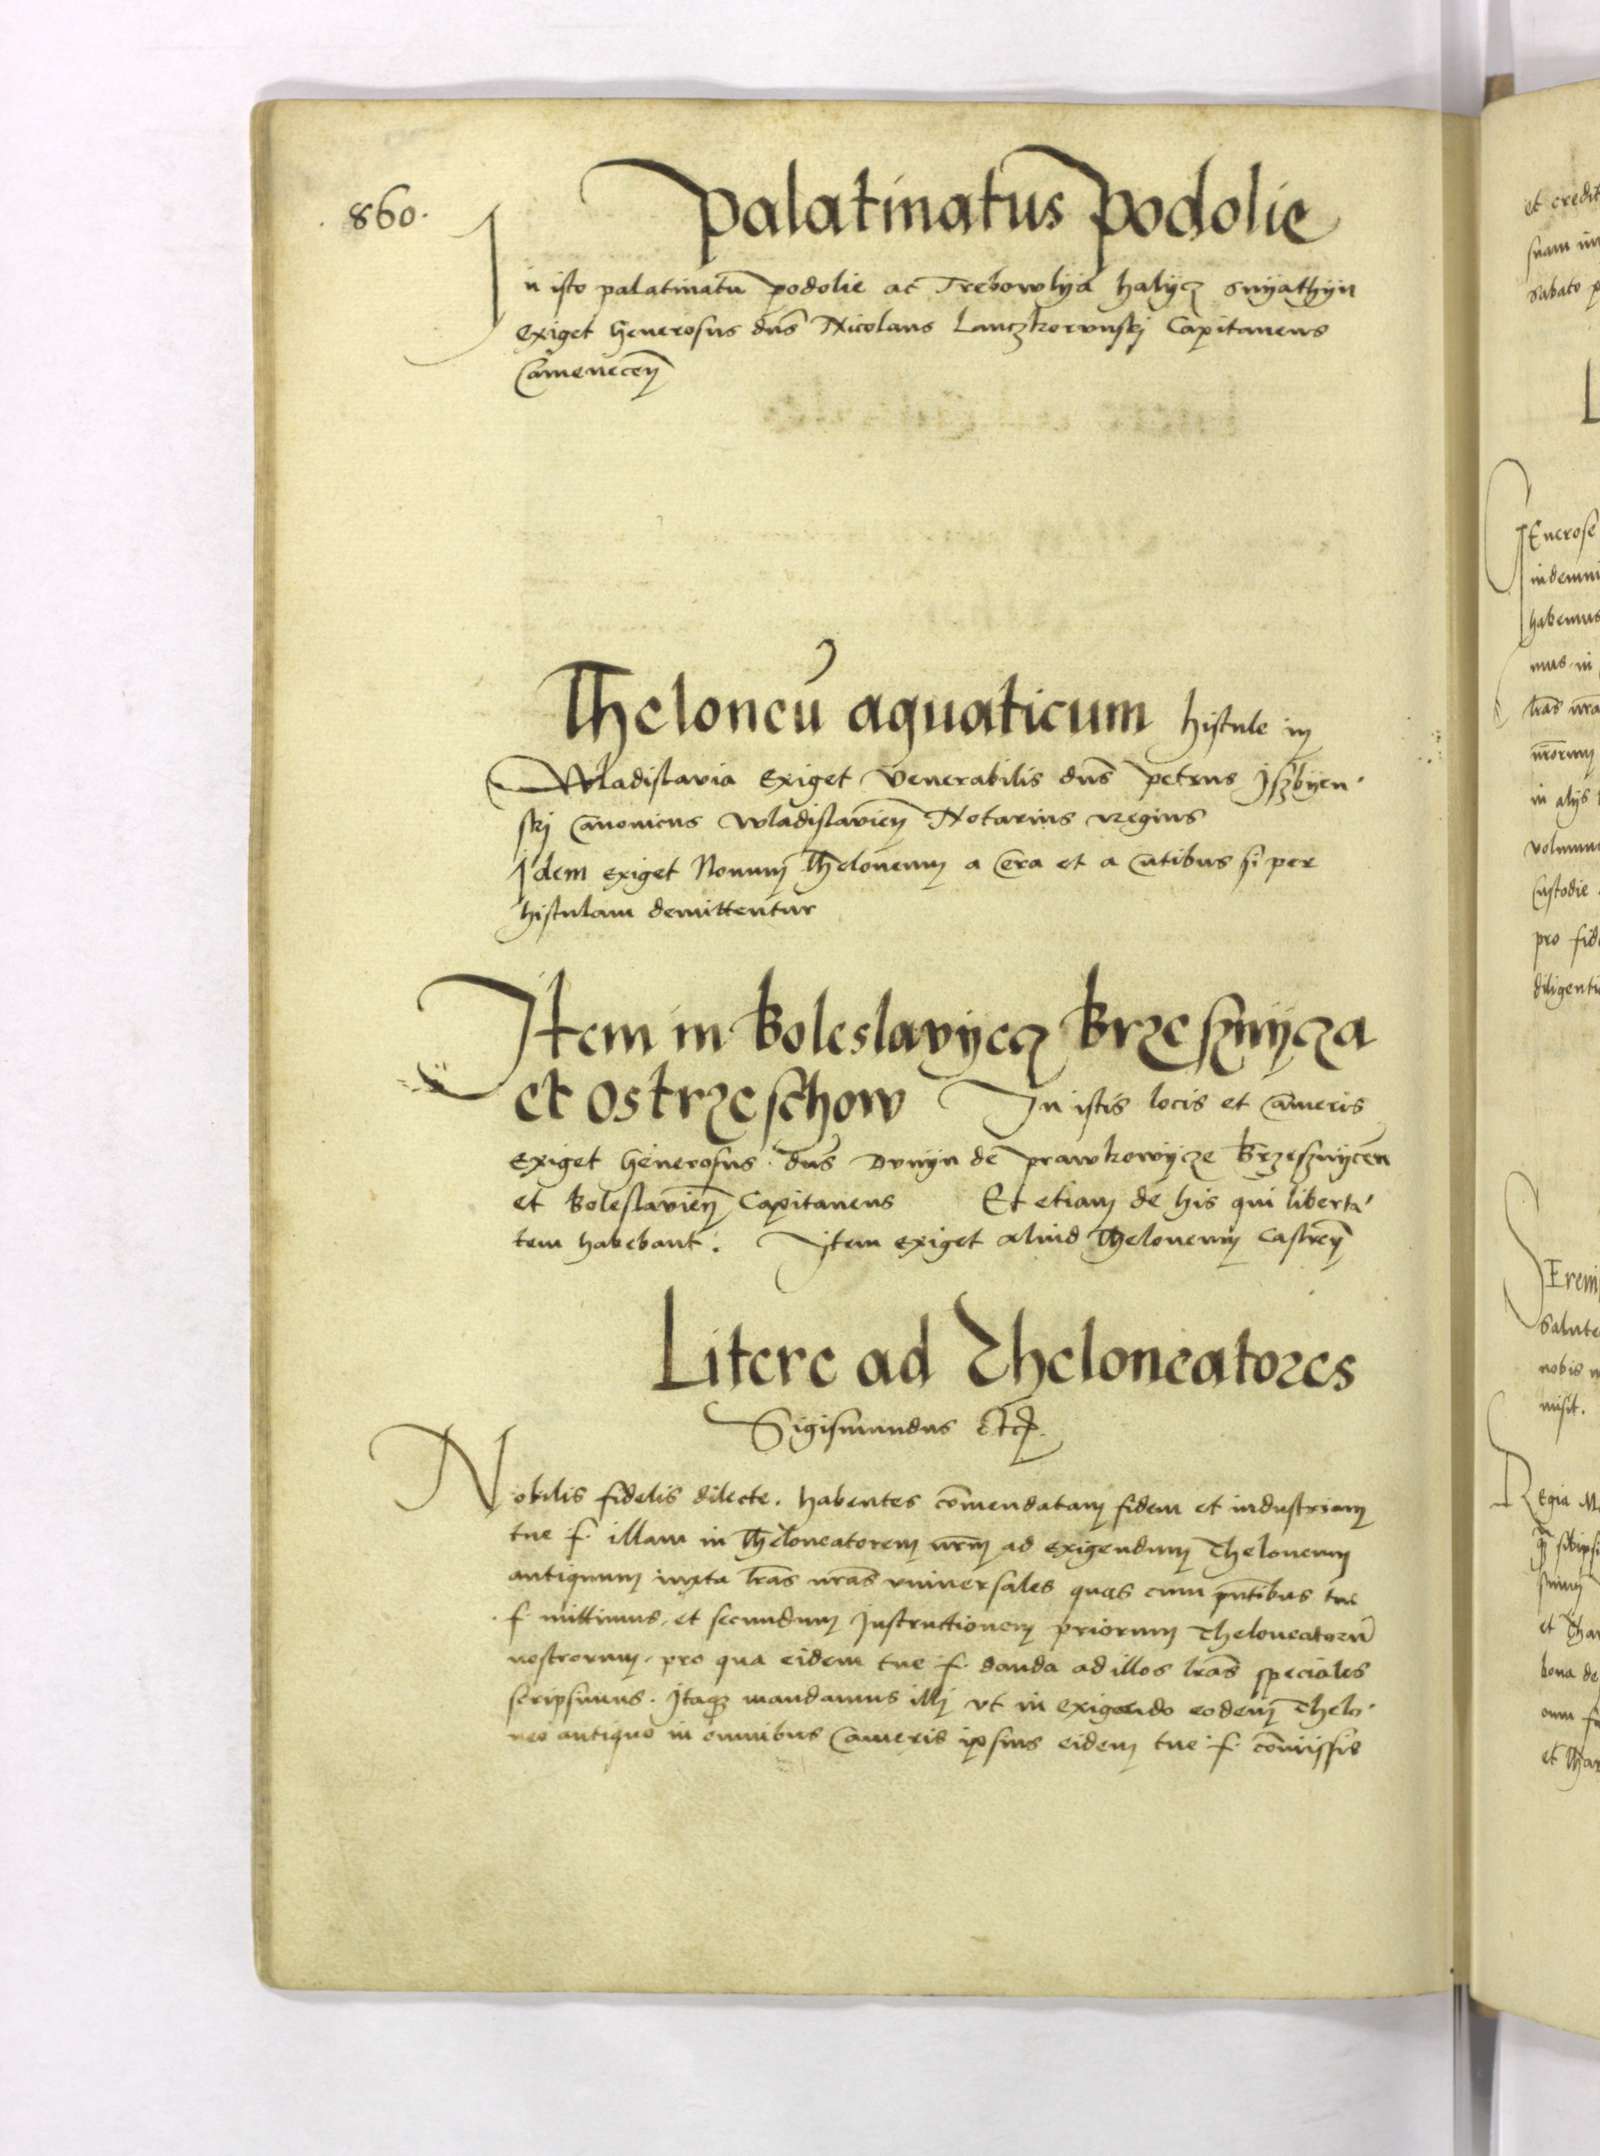 860.
Palatinatus Podolie
In isto palatinatu podolie ac Trebowlya halycz Snyathyn
Exiget Generosus dns Nicolaus Lanczkorunski Capitaneus
Camenecen
Theloneu aquaticum histule in
Wladislavia Exiget Venerabilis dns petrus Iszbyen
ski Canonicus Wladislavien Notarius regius
Idem exiget Nonum Theloneum a Cera et a Cutibus si per
histulam demittentur
Item in Boleslavyecz Brzesznycza
et Ostrzeschow In istis locis et cameris
Exiget Generosus dns Dunyn de prawkowycze Brzesznycen
et Boleslavien Capitaneus Et etiam de his qui liberta
tem habebant. Item exiget aliud Theloneum Castren
Litere ad Theloneatores
Sigismundus etc.
Nobilis fidelis dilecte. habentes comendatam fidem et industriam
tue f. illam in Theloneatorem nrm ad exigendum Theloneum
antiquum iuxta lras nras universales quas cum pntibus tue
f. mittimus. et secundum Instructionem priorum Theloneatoru
nostrorum. pro qua eidem tue f. danda ad illos lras speciales
scripsimus. Itaq mandamus illi vt in exigendo eodem Thelo
neo antiquo in omnibus Cameris ipsius eidem tue f. comissis
et credit
suam
sabato p
L
Enerose
indemni
habemus
mus. in
lras nra
nrorum
in alys
volumu
Custodie
pro fid
diligenti
SEreni
Salute
nobis n
misit.
Regia M
et Thar
bona de
et Thar